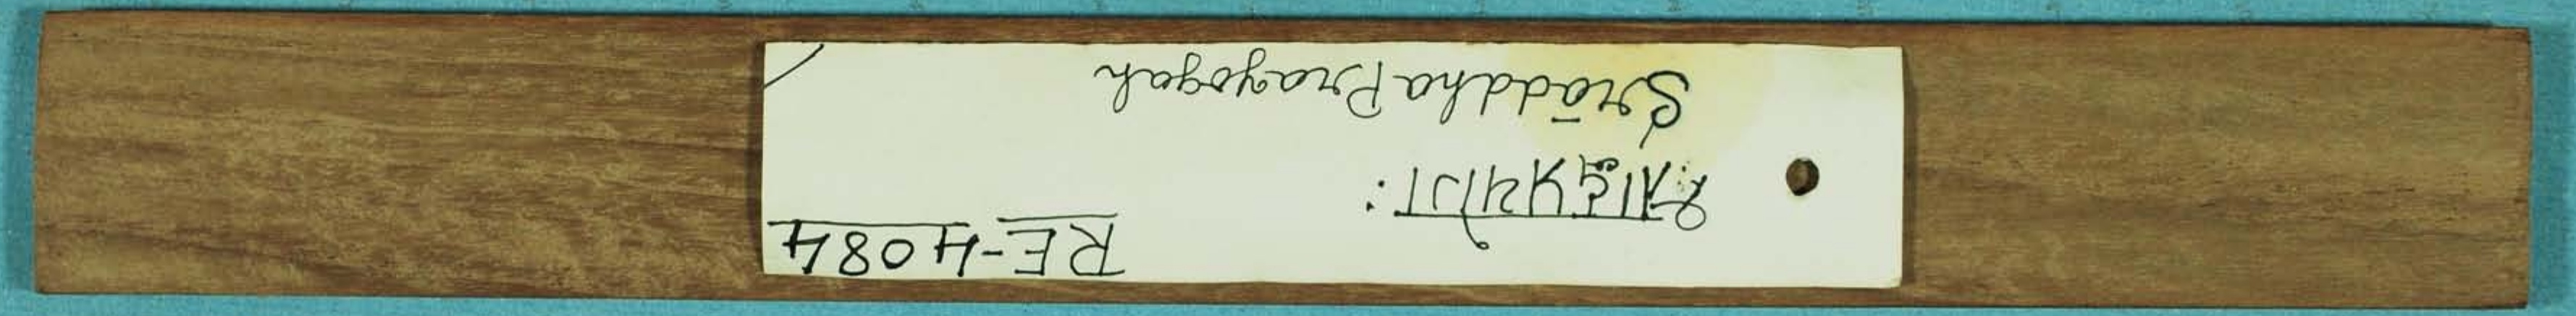 RE-4084
श्राद्धप्रयोगः
Śrāddha Prayogaḥ